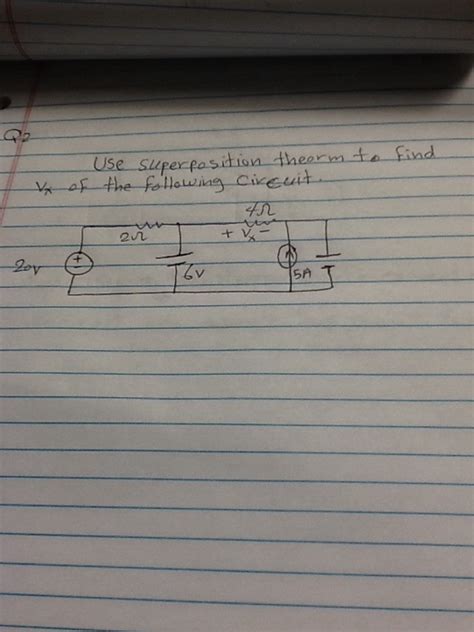 Q2
Use superposition theorm to find
Vx of the following Circuit.
4Ω
2Ω
+ Vx -
20v
6V
5A